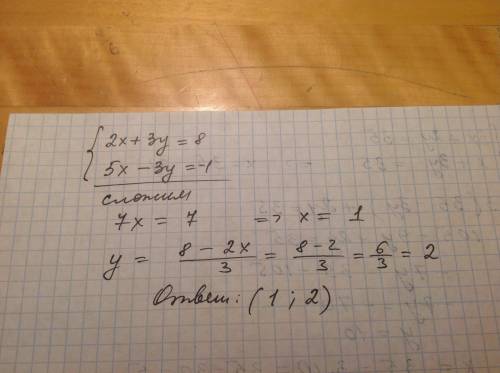 2x + 3y = 8
5x − 3y = −1
сложим
7x = 7 => x = 1
y = (8 − 2x)/3 = (8 − 2)/3 = 6/3 = 2
Ответ: (1 ; 2)